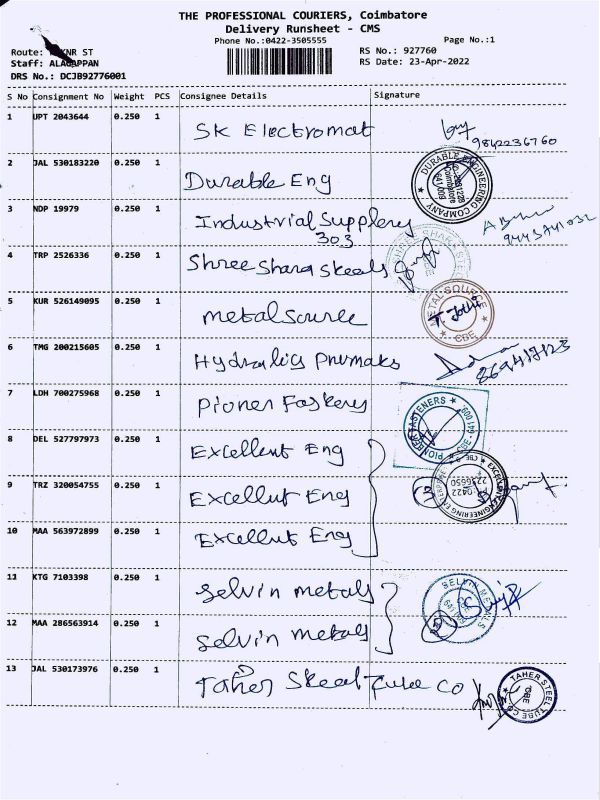 THE PROFESSIONAL COURIERS, Coimbatore
Delivery Runsheet - CMS
Phone No.:0422-3505555
Page No.:1
Route: NR ST
RS No.: 927760
Staff: ALAGAPPAN
RS Date: 23-Apr-2022
DRS No.: DCJB92776001
S No Consignment No Weight PCS Consignee Details Signature
1 UPT 2043644 0.250 1 SK Electromat
9842236760
2 JAL 530183220 0.250 1 Durable Eng
DURABLE ENGINEERING COMPANY
3 NDP 19979 0.250 1 Industrial Supplery
303
4 TRP 2526336 0.250 1 Shree Shara Skeals
5 KUR 526149095 0.250 1 metal Source
METAL SOURCE
CBE
6 TMG 200215605 0.250 1 Hydralics Pnrmaks
7 LDH 700275968 0.250 1 Pioner Faskery
PIONEER FASTENERS
CBE 641 009
8 DEL 527797973 0.250 1 Excellent Eng
9 TRZ 320054755 0.250 1 Excellut Eng
3
EXCELLENT ENGINEERING ENTERPRISE
CBE
0422
2236650
10 MAA 563972899 0.250 1 Excellut Eng
11 KTG 7103398 0.250 1 Selvin metals
SELVIN METALS
12 MAA 286563914 0.250 1 Selvin metals
2
13 JAL 530173976 0.250 1 Taher Skeal Tube Co
TAHER STEEL TUBE CO
CBE